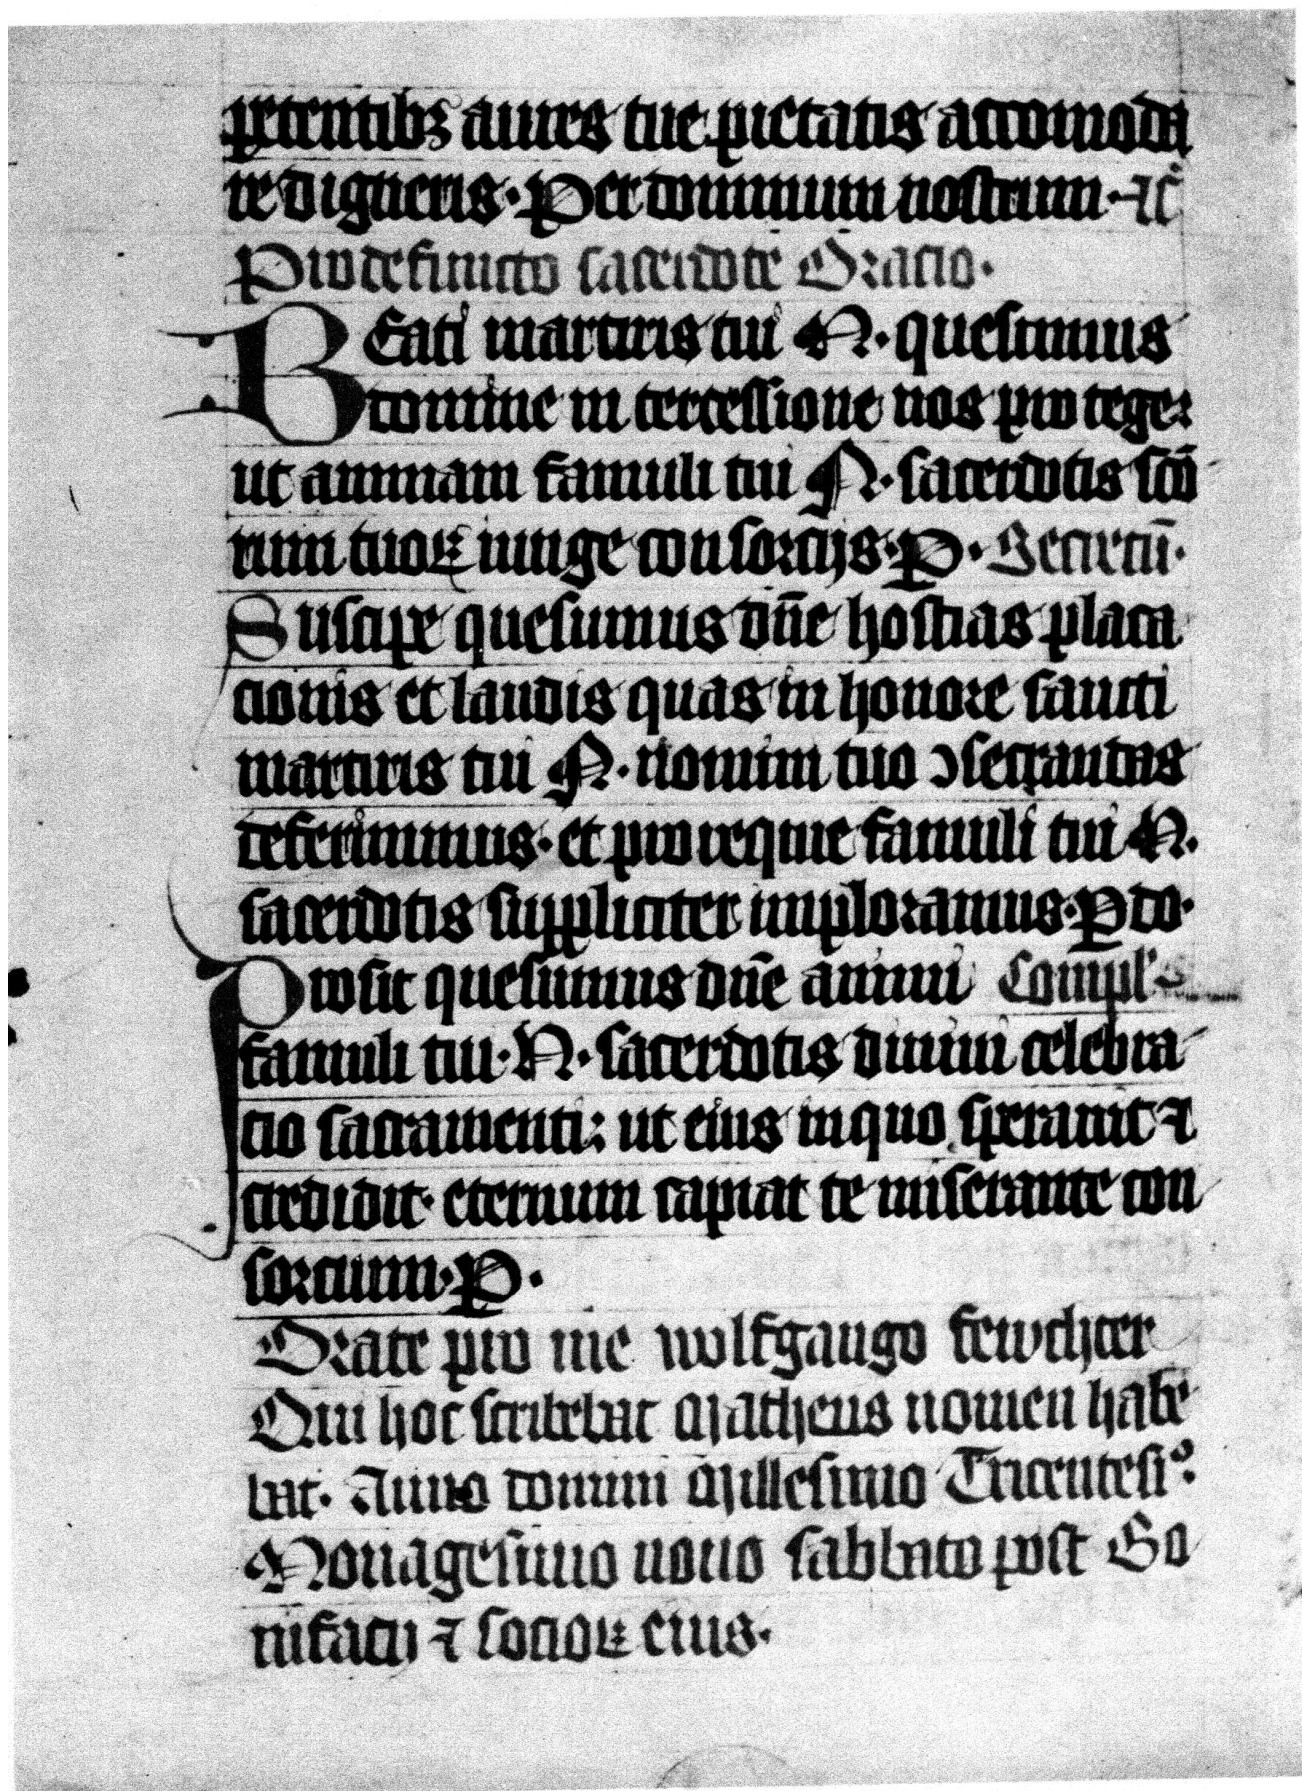 petentibꝫ aures tue pietatis accomoda
re digneris· Per dominum nostrum· ⁊cͣ
Pro defuncto sacerdote Oracio·
BEati martiris tui N· quesumus
domine in tercessione nos protege:
ut animam famuli tui N· sacerdotis sc̄o
rum tuoꝝ iunge con sorcijs· P· Secretū·
Suscipe quesumus dn̄e hostias placa
cionis et laudis quas in honore sancti
martiris tui N· nomini tuo ↄsecrandas
deferimus· et pro requie famuli tui N·
sacerdotis suppliciter imploramus· P do·
Prosit quesumus dn̄e animi Compl̄
famuli tui· N· sacerdotis diuini celebra
cio sacramenti: ut eius in quo sperauit ⁊
credidit· eternum capiat te miserante con
sorcium· P·
Orate pro me wolfgango fewchter
Qui hoc scribebat Matheus nomen habe
bat· Anno domini Millesimo Tricentesiº·
Nonagesimo nono sabbato post Bo
nifacij ⁊ socioꝝ eius·